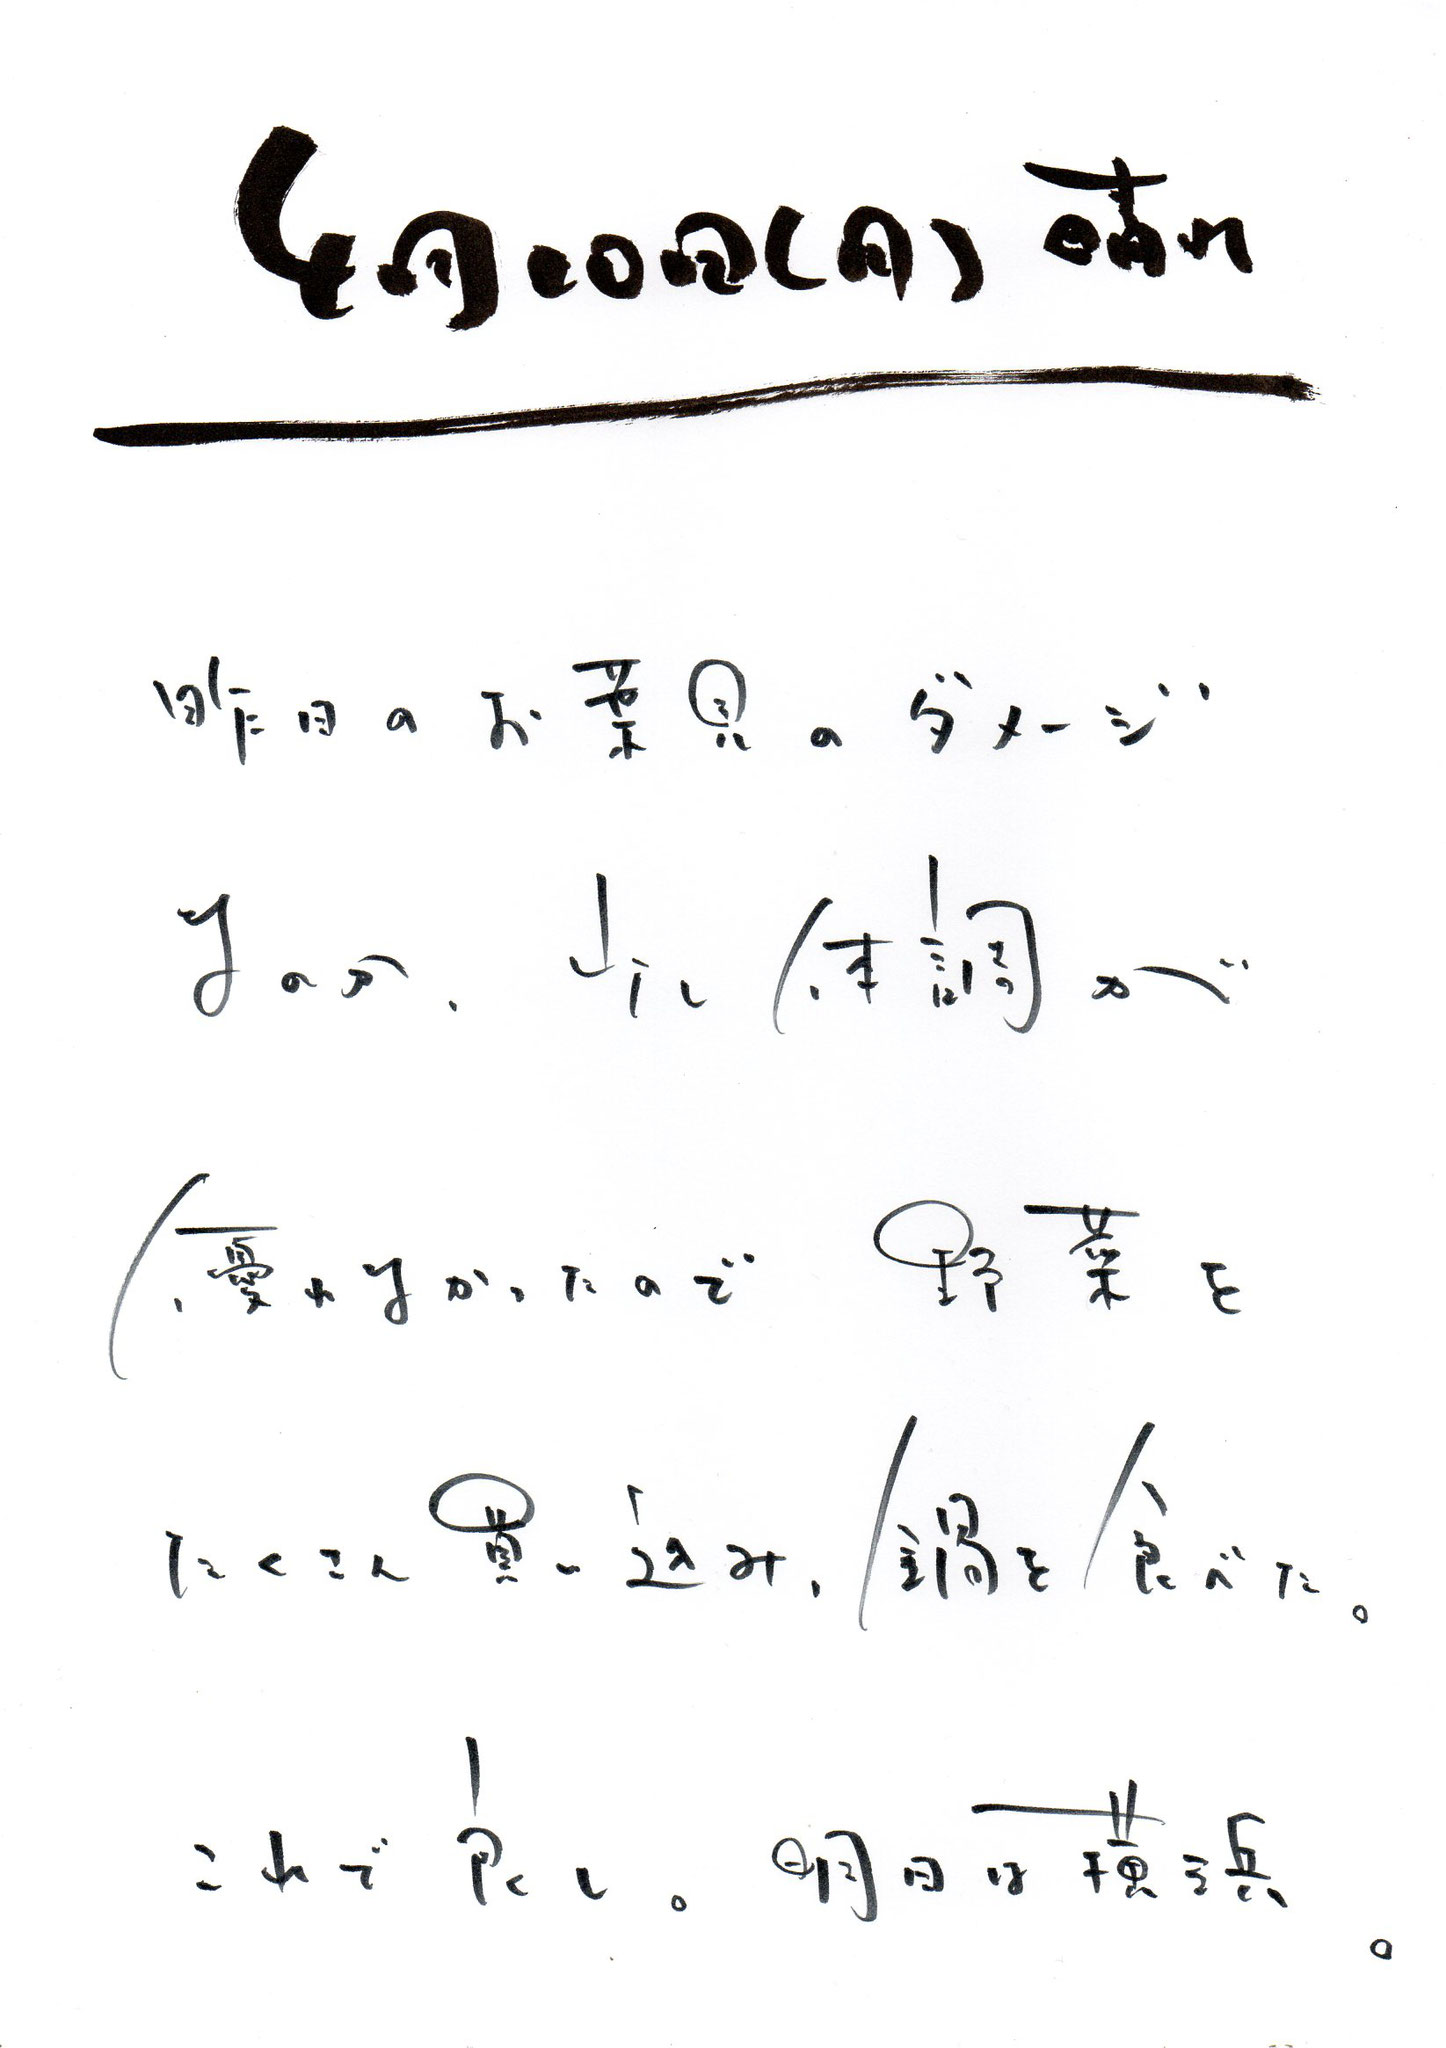 4月10日(月) 晴れ
昨日のお葉見のダメージ
なのか、少し体調が
優れなかったので 野菜を
たくさん買い込み、鍋を食べた。
これで良し。明日は横浜。